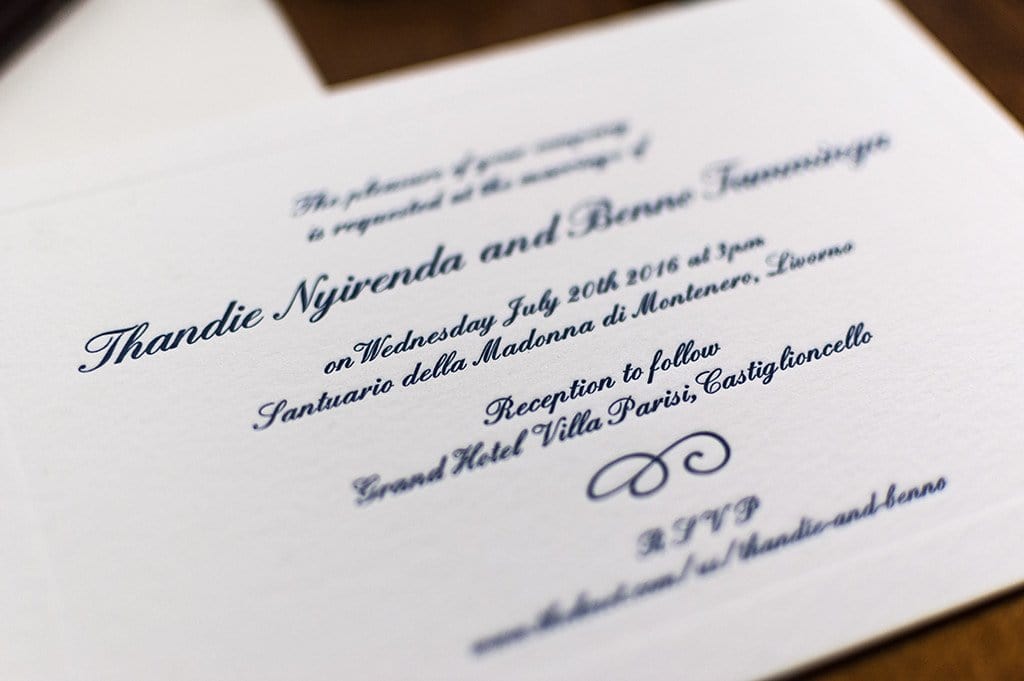 The pleasure of your company
is requested at the marriage of
Thandie Nyirenda and Benno Tamminga
on Wednesday July 20th 2016 at 3pm
Santuario della Madonna di Montenero, Livorno
Reception to follow
Grand Hotel Villa Parisi, Castiglioncello
R S V P
/us/thandie-and-benno